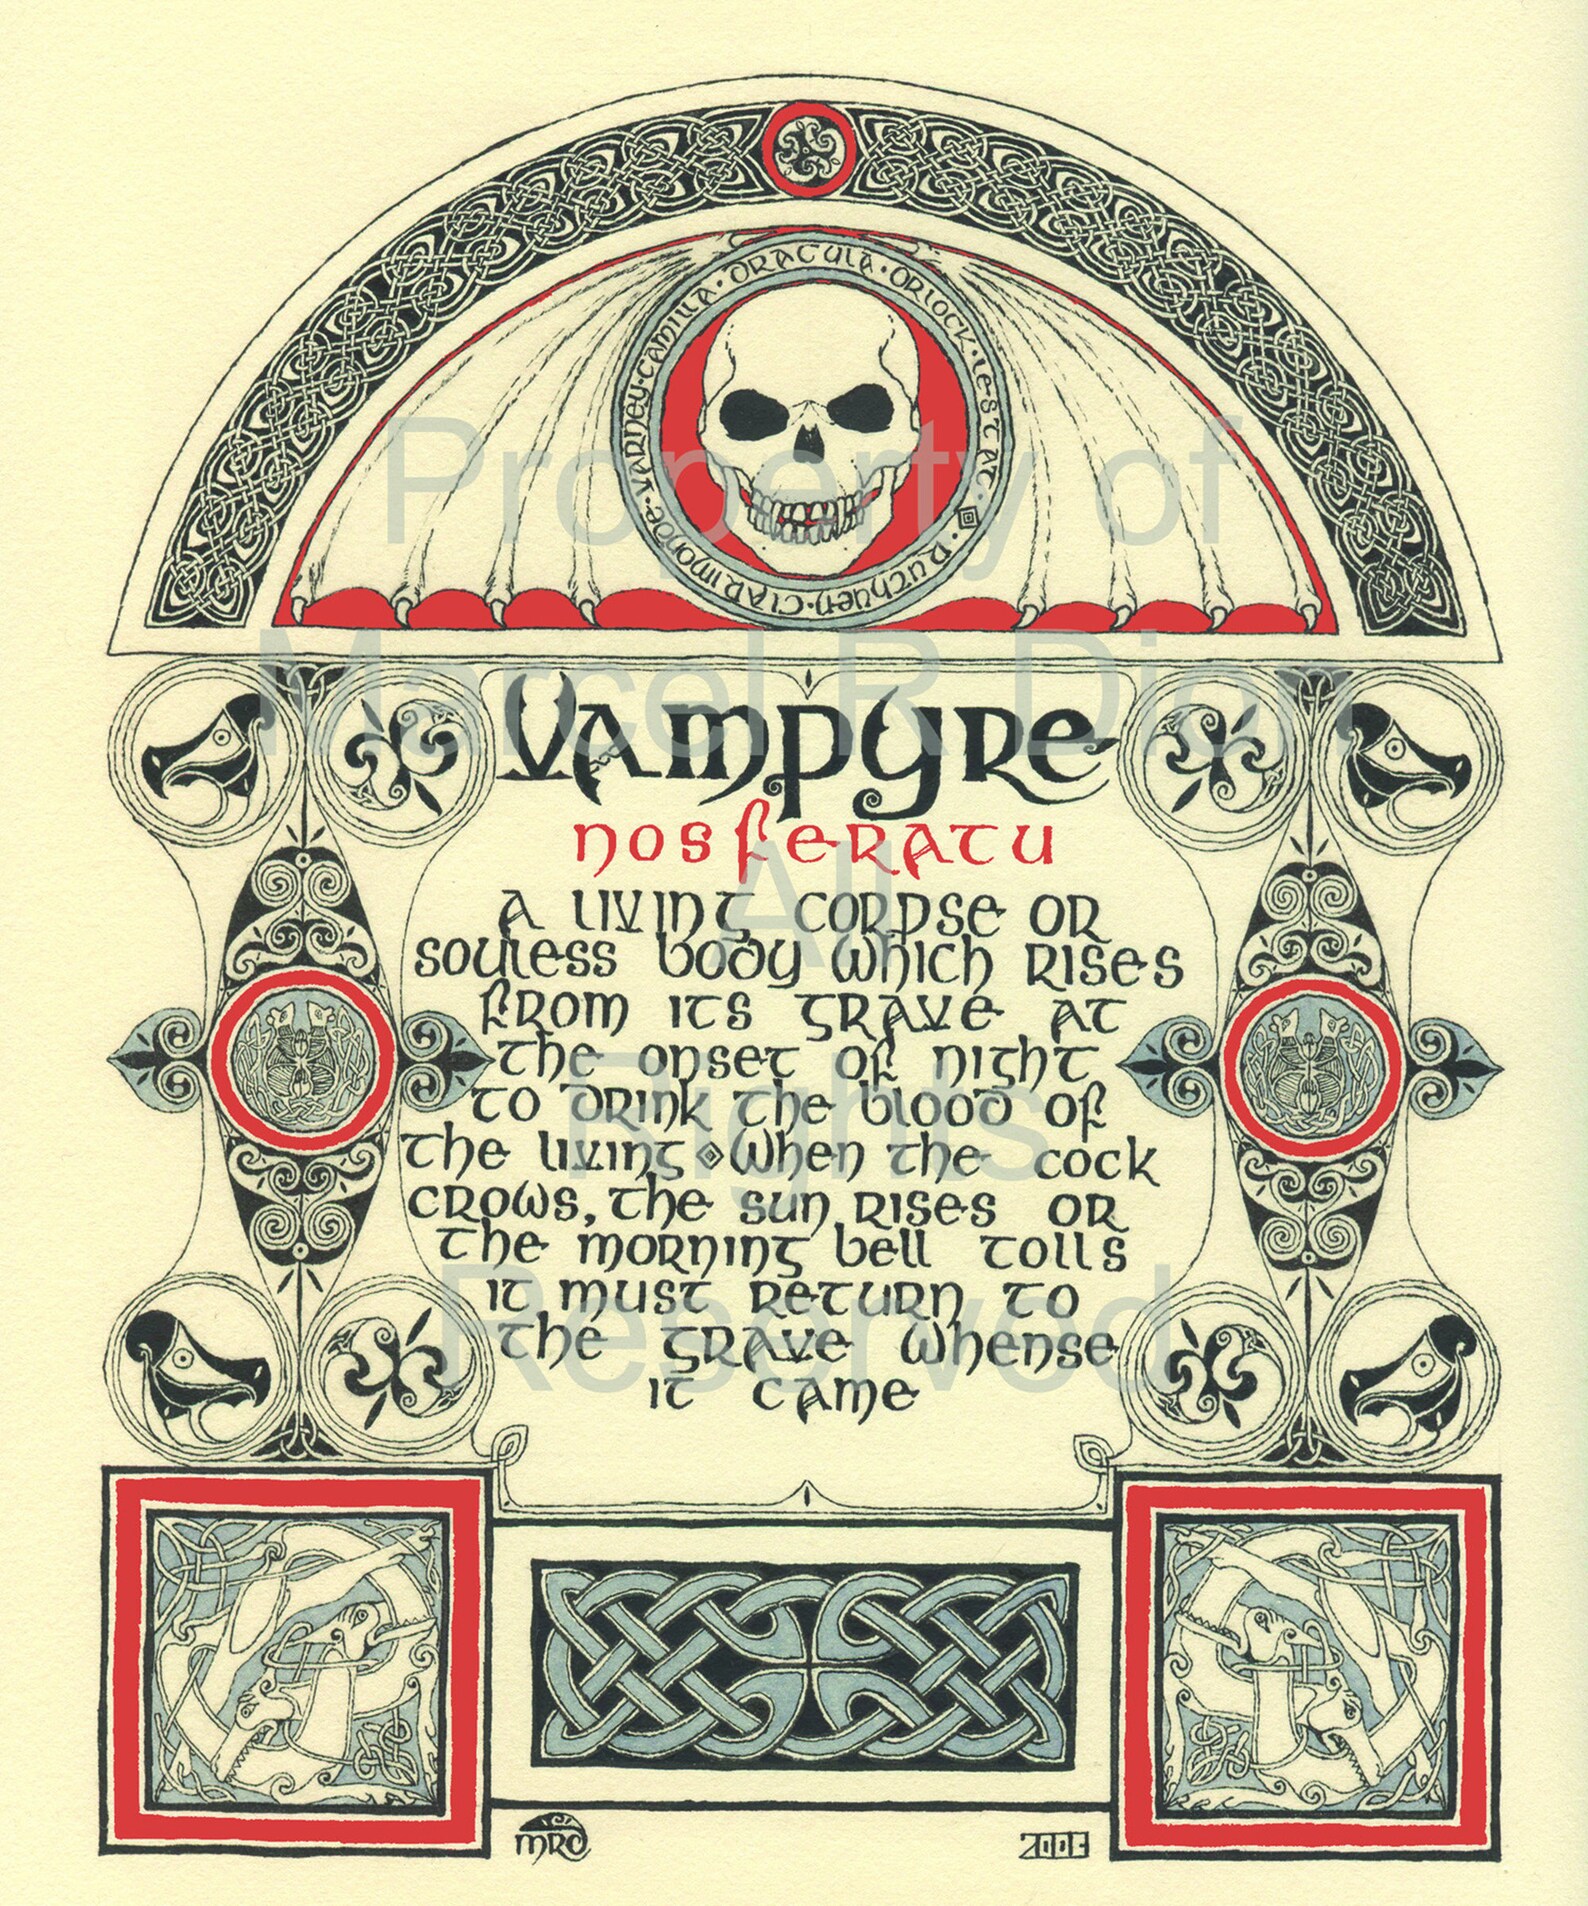 Ruthven · Clarimonde · Varney · Camilla · Dracula · Orlock · Lestat ·
Vampyre
nosferatu
A living corpse or
souless body which rises
from its grave at
the onset of night
to drink the blood of
the living ◈ When the cock
crows, the sun rises or
the morning bell tolls
it must return to
the grave whense
it came
MRD
Property of
Marcel R Dion
All
Rights
Reserved